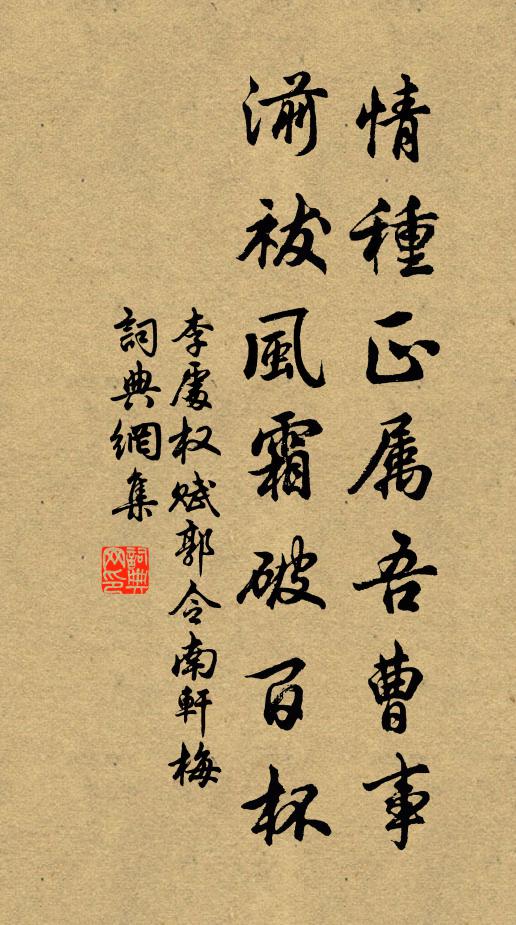 情種正属吾曹事
湔祓風霜破百杯
李處权賦郭令南軒梅
詞典網集
詞典网印